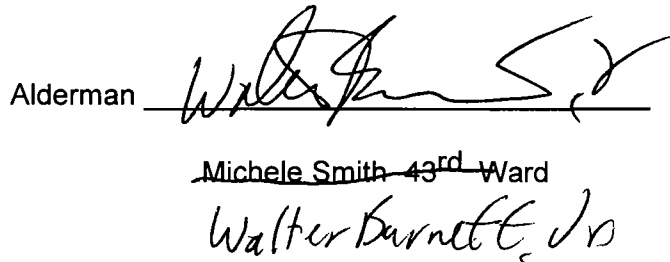 Alderman Walter Burnett, Jr
Michele Smith 43rd Ward
Walter Burnett, Jr